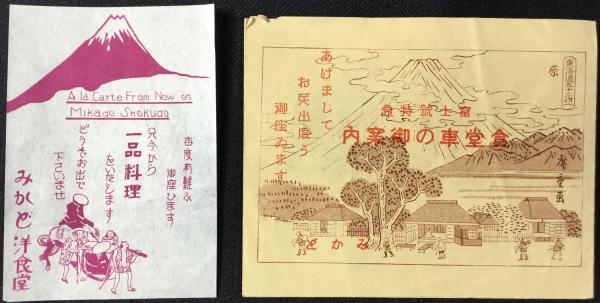 A la Carte From Now on
Mikado Shokudo
毎度有難ふ
御座ひます
只今から
一品料理
をいたします
どうぞお出で
下さいませ
みかど洋食堂
東海道五十三次
原
富士號特急
食堂車の御案内
あけまして
お芽出度う
御座ゐます
廣重画
みかど